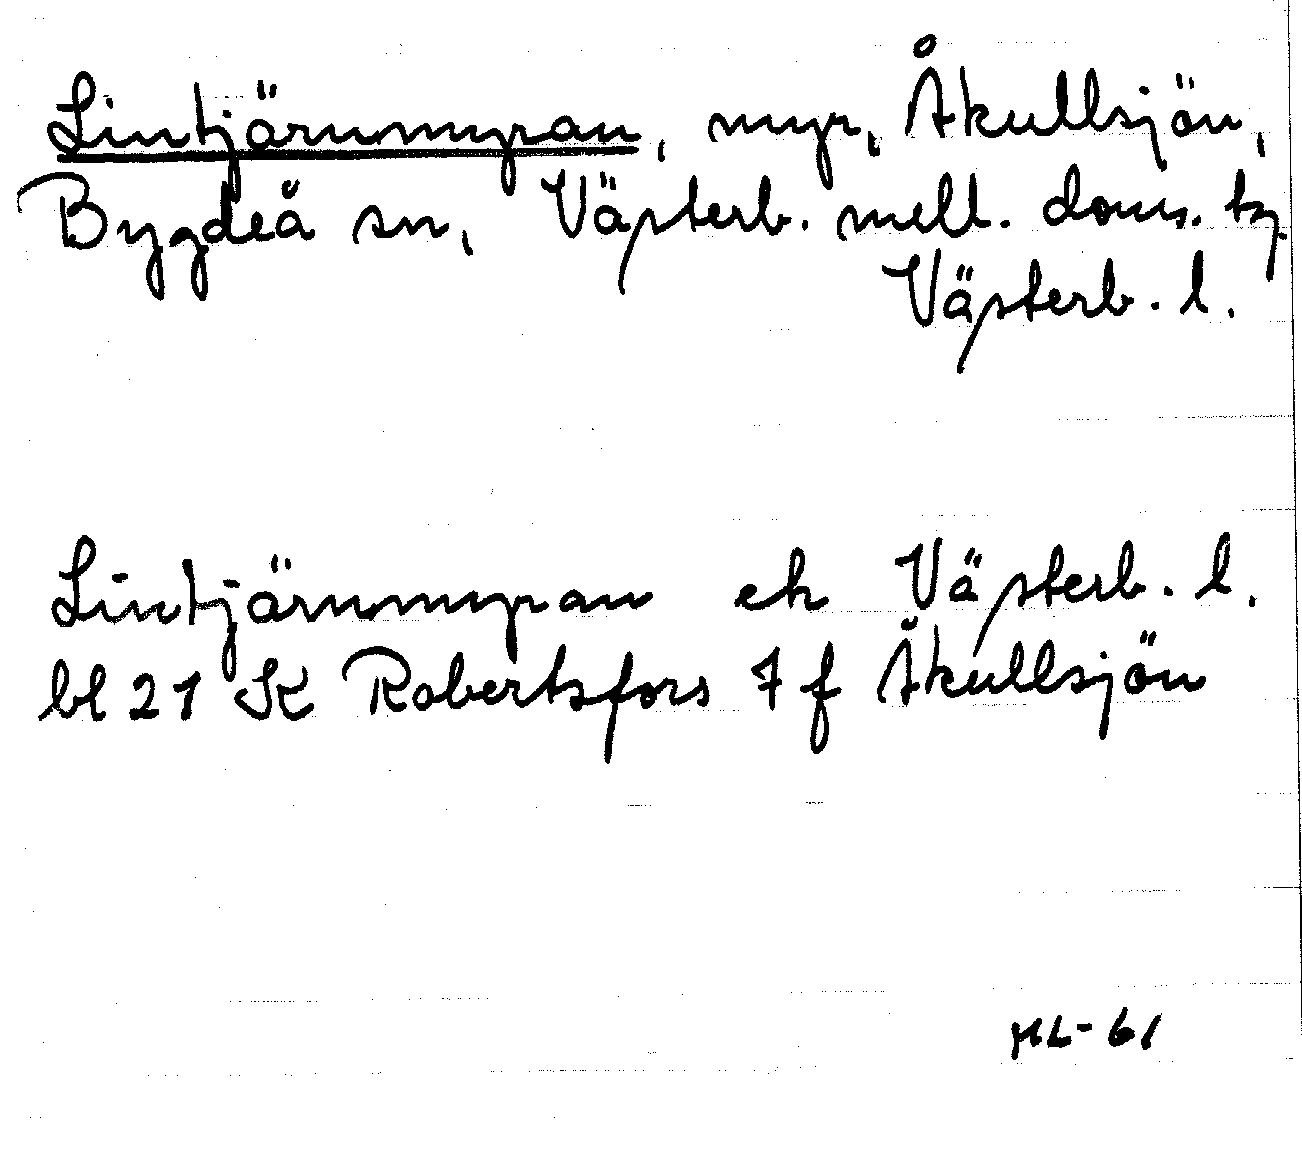 Lintjärnmyran, myr, Åkullsjön,
Bygdeå sn, Västerb. mell. doms. tg
Västerb. l.
Lintjärnmyran ek Västerb. l.
bl 21 K Robertsfors 7 f Åkullsjön
ML-61